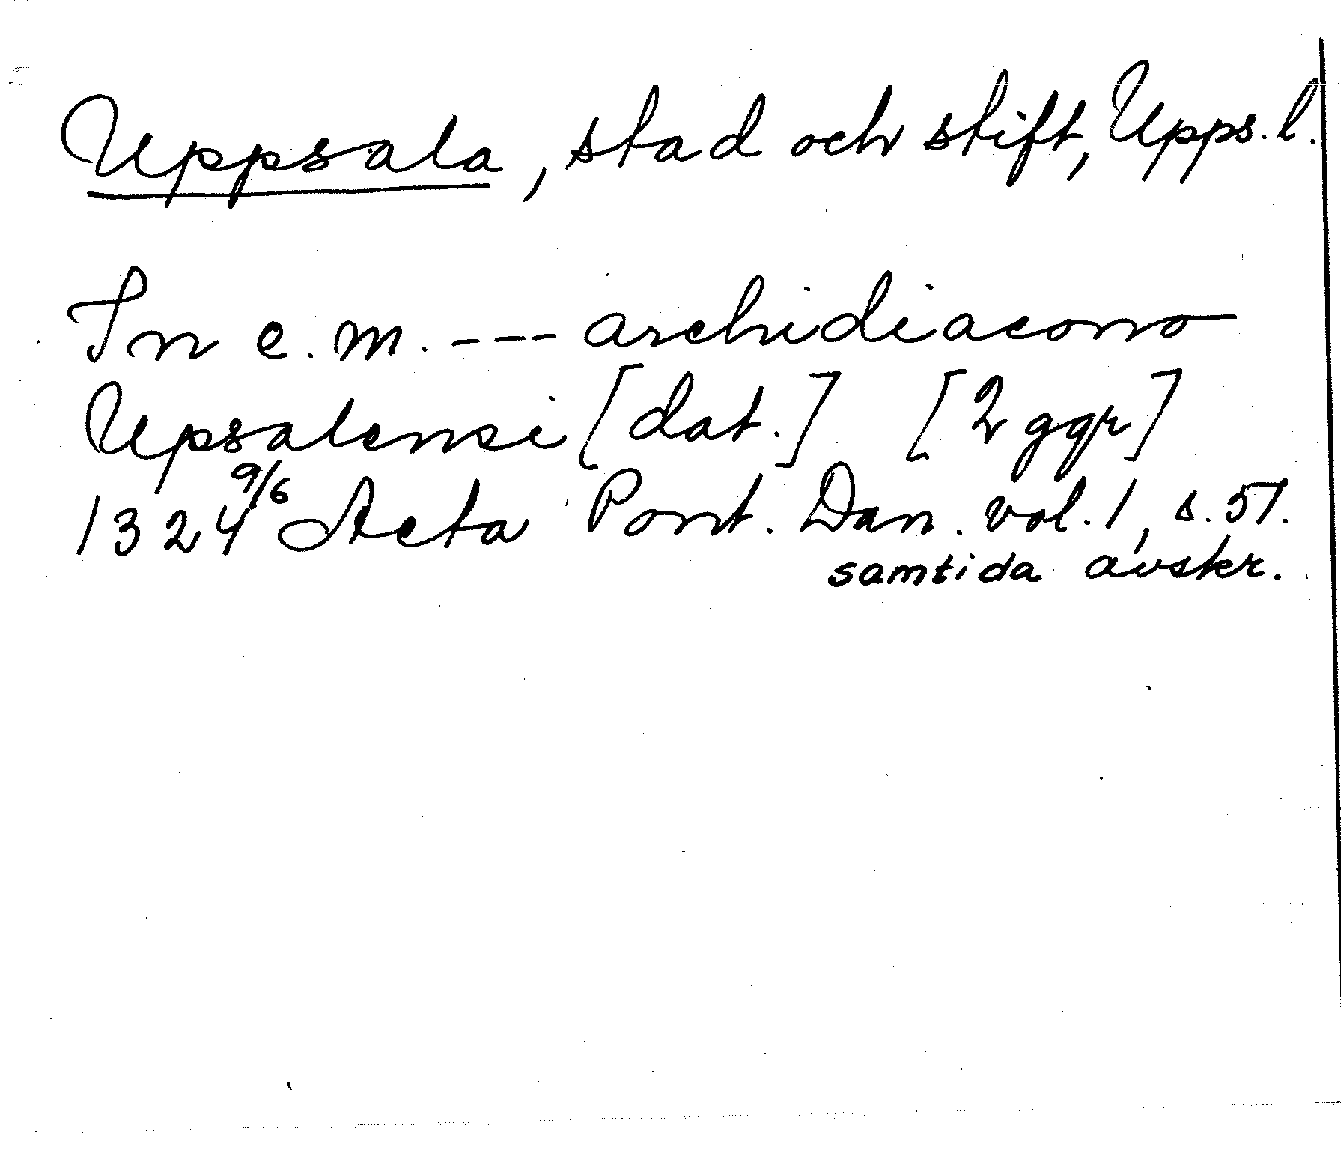 Uppsala, stad och stift, Upps. l.
In e. m. --- archidiacono
Upsalensi [dat.] [2 ggr]
1324 9/6 Acta Pont. Dan. vol. 1, s. 57.
samtida avskr.